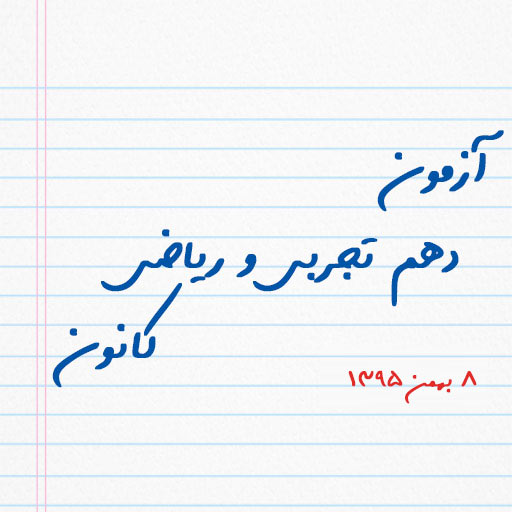 آزمون
دهم تجربی و ریاضی
کانون
۸ بهمن ۱۳۹۵